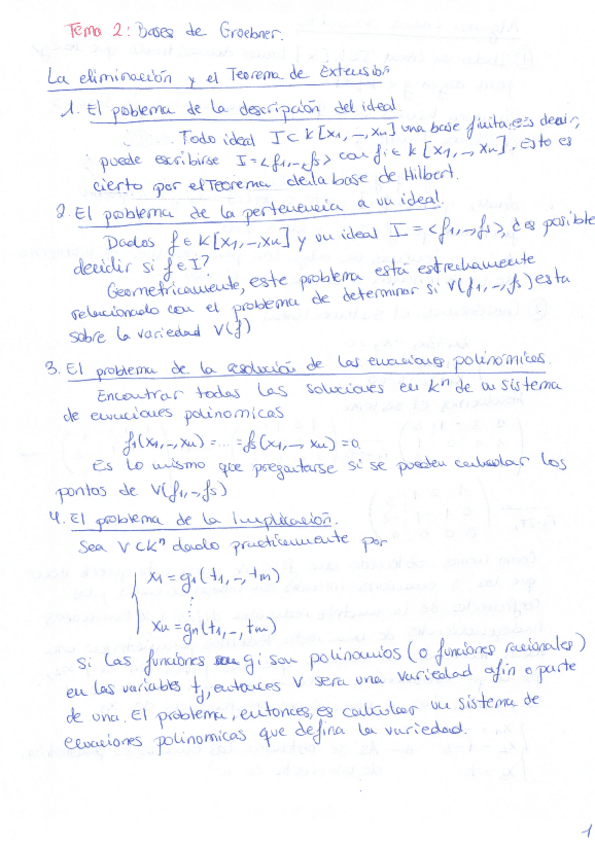 Tema 2: Bases de Groebner.
La eliminación y el Teorema de Extensión
1. El problema de la descripción del ideal.
Todo ideal I ⊂ K[x1,-,xn] una base finita, es decir,
puede escribirse I=<f1,-,fs> con fi ∈ K[x1,-,xn]. Esto es
cierto por el Teorema de la base de Hilbert.
2. El problema de la pertenencia a un ideal.
Dados f ∈ K[x1,-,xn] y un ideal I = <f1,-,fs>, ¿es posible
decidir si f∈I?
Geometricamente, este problema está estrechamente
relacionado con el problema de determinar si V(f1,-,fs) esta
sobre la variedad V(f)
3. El problema de la resolución de las ecuaciones polinómicas.
Encontrar todas las soluciones en Kⁿ de un sistema
de ecuaciones polinomicas
f1(x1,-,xn) = ... = fs(x1,-,xn) = 0.
Es lo mismo que preguntarse si se pueden calcular los
pontos de V(f1,-,fs)
4. El problema de la Implicación.
Sea V⊂Kⁿ dado practicamente por
x1 = g1(t1,-,tm)
⋮
xn = gn(t1,-,tm)
Si las funciones gi son polinomios (o funciones racionales)
en las variables tj, entonces V sera una variedad afin o parte
de una. El problema, entonces, es calcular un sistema de
ecuaciones polinomicas que defina la variedad.
1